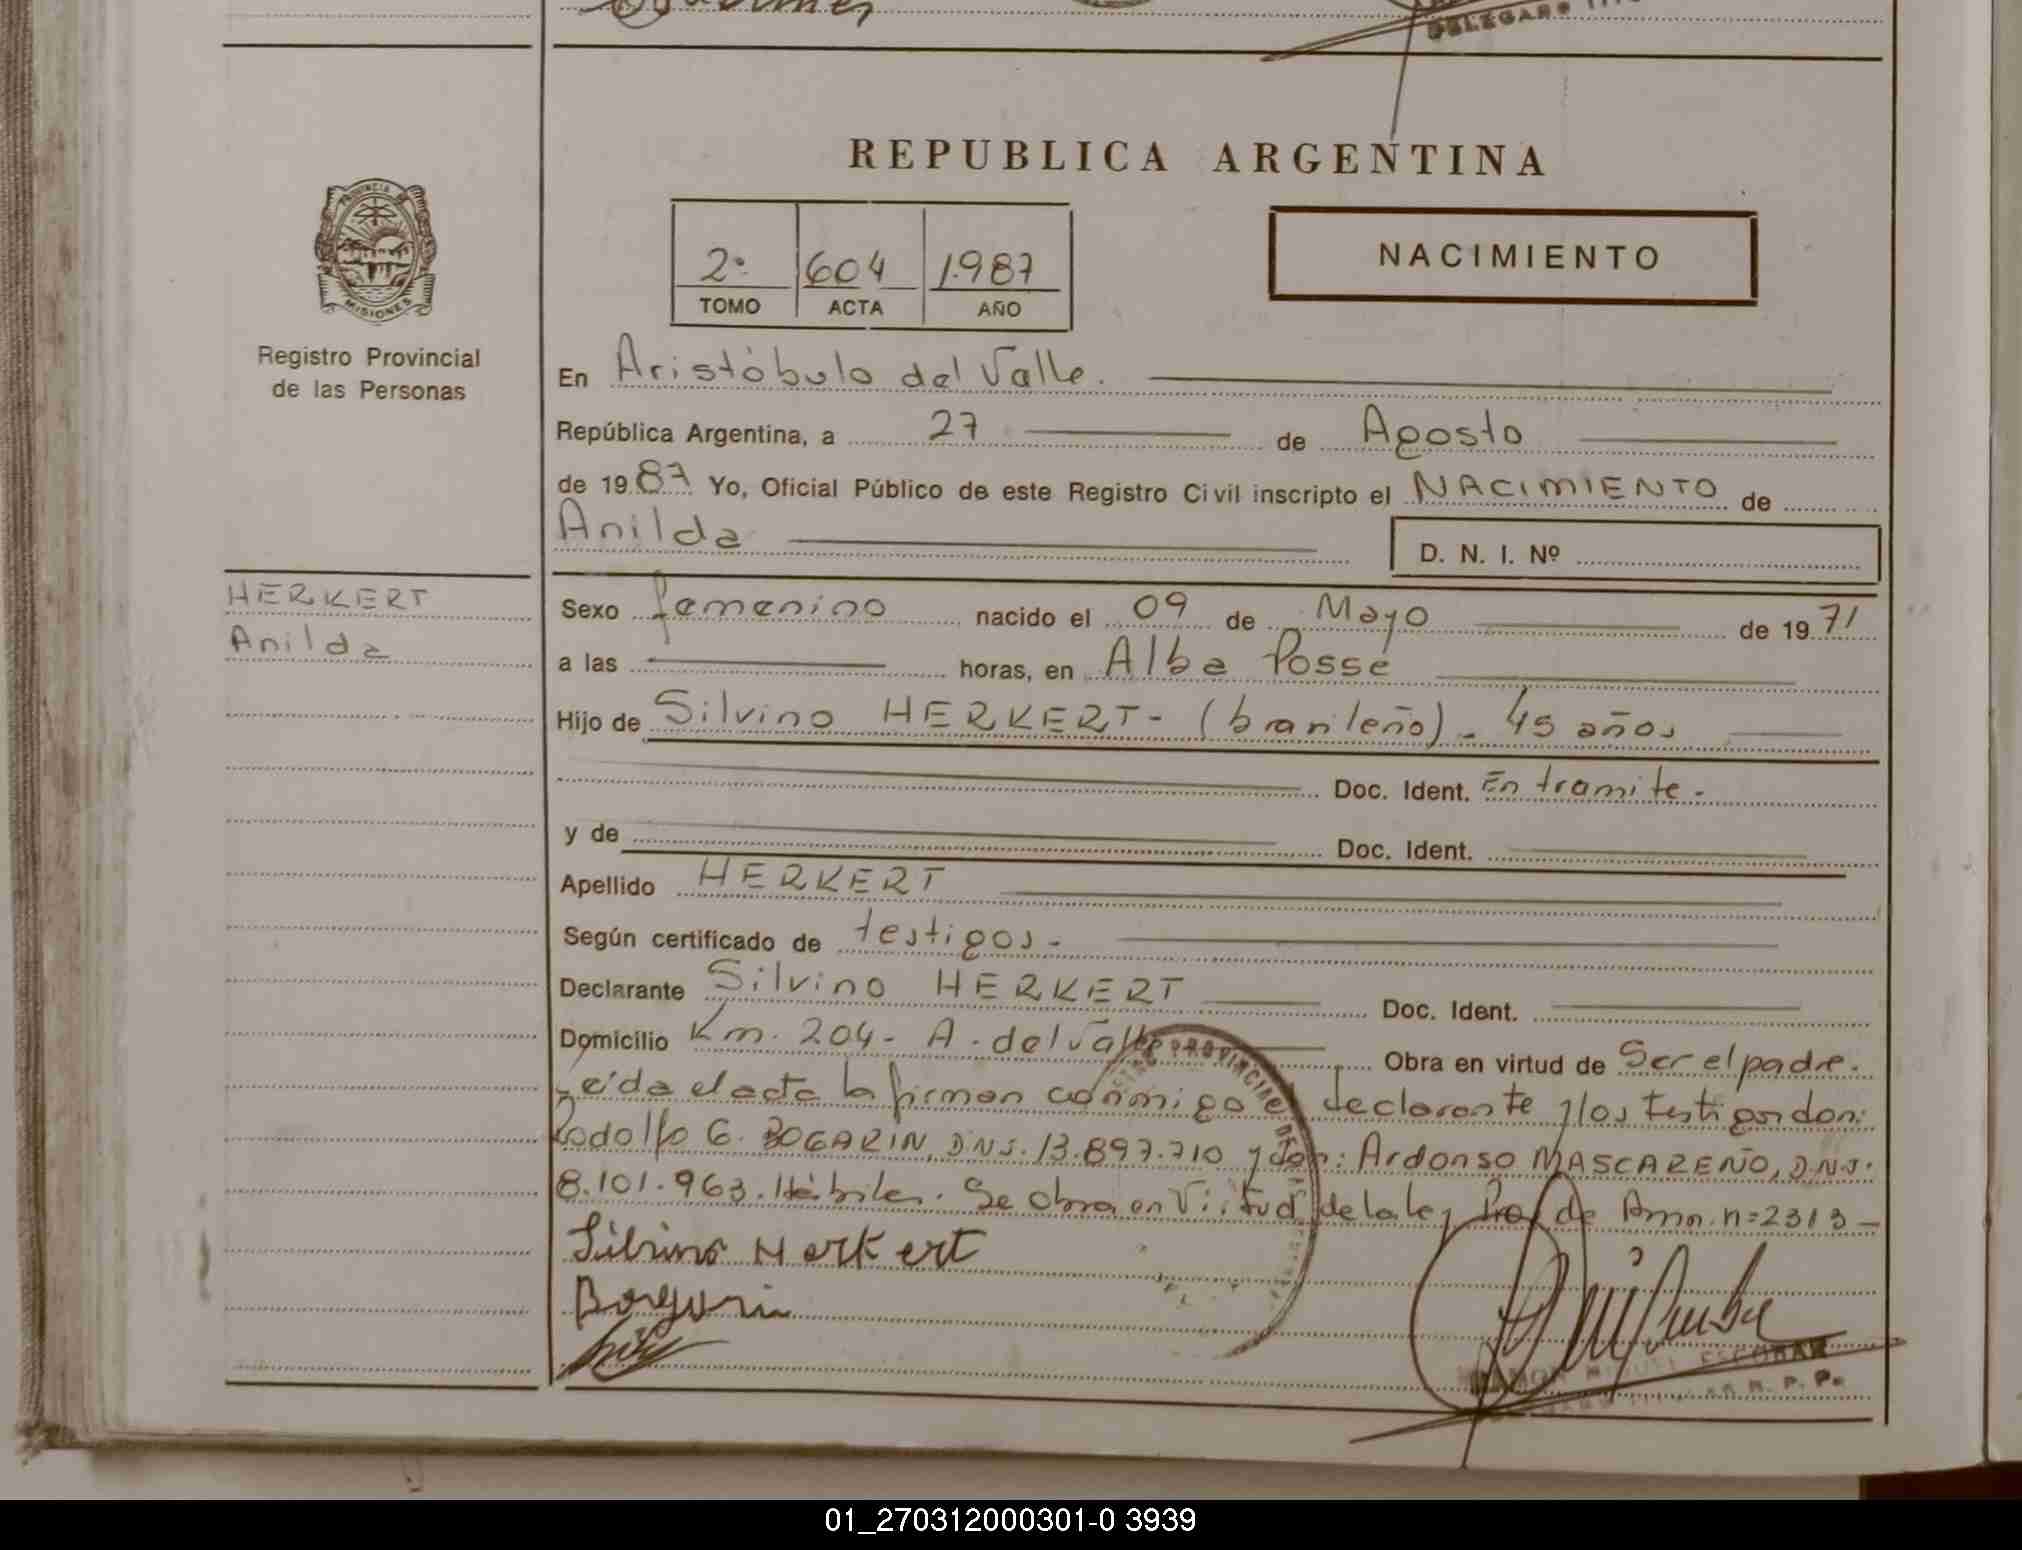 DELEGADO
REPUBLICA ARGENTINA
PROVINCIA DE
MISIONES
Registro Provincial
de las Personas
2º 604 1.987
TOMO ACTA AÑO
NACIMIENTO
En Aristóbulo del Valle.
República Argentina, a 27 de Agosto
de 1987 Yo, Oficial Público de este Registro Civil inscripto el NACIMIENTO de
Anilda D. N. I. Nº
HERKERT
Anilda
Sexo femenino nacido el 09 de Mayo de 1971
a las horas, en Alba Posse
Hijo de Silvino HERKERT - (brasileño) - 45 años
Doc. Ident. En tramite -
y de Doc. Ident.
Apellido HERKERT
Según certificado de testigos -
Declarante Silvino HERKERT Doc. Ident.
Domicilio Km. 204 - A. del Valle Obra en virtud de Ser el padre.
Leída el acta la firman conmigo el declarante y los testigos don:
Rodolfo G. BOGARIN, DNI. 13.897.710 y don: Ardonso MASCAREÑO, DNI.
8.101.963. Hábiles. Se Obra en Virtud de la ley Pro. de Amn. n=2313 -
Silvino Herkert
Bogarin
RAMON MIGUEL ESCOBAR
R. P. P.
01_270312000301-0 3939